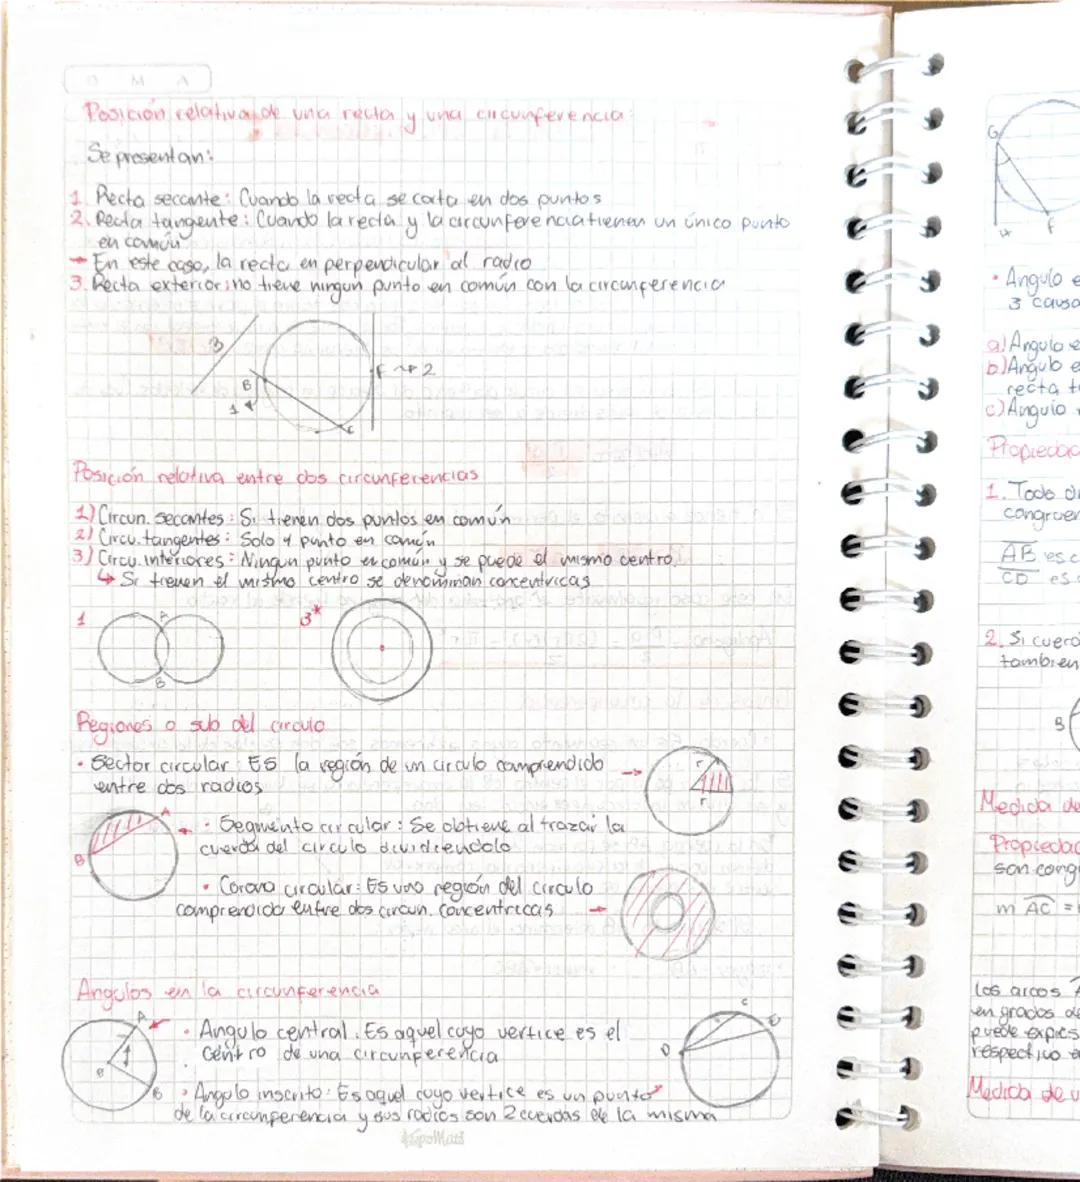 D M A
Posición relativa de una recta y una circunferencia:
Se presentan:
1. Recta secante: Cuando la recta se corta en dos puntos
2. Recta tangente: Cuando la recta y la circunferencia tienen un único punto
en común
→ En este caso, la recta en perpendicular al radio
3. Recta exterior: no tiene ningun punto en común con la circunferencia
3
B
F → 2
1
C
Posición relativa entre dos circunferencias
1) Circun. secantes: Si tienen dos puntos en común
2) Circu. tangentes: Solo 1 punto en común
3) Circu. interiores: Ningun punto en común y se puede el mismo centro.
↳ Si tienen el mismo centro se denominan concentricas
1
A
B
3*
Regiones o sub del circulo
• Sector circular: Es la región de un circulo comprendido →
entre dos radios
r
r
A
B
• Segmento circular: Se obtiene al trazar la
cuerda del circulo dividiendolo
• Corona circular: Es una región del circulo
comprendido entre dos circun. concentricas →
Angulos en la circunferencia
A
B
• Angulo central. Es aquel cuyo vertice es el
centro de una circunferencia
C
D
• Angulo inscrito: Es aquel cuyo vertice es un punto
de la circunferencia y sus radios son 2 cuerdas de la misma
G
H
F
• Angulo e
3 causa
a) Angulo e
b) Angulo e
recta t
c) Angulo
Propiedad
1. Todo di
congruen
AB es c
CD es
2. Si cuerd
tambien
B
Medida de
Propiedad
son cong
m AC =
Los arcos
en grados de
puede expres
respectivo
Medida de u